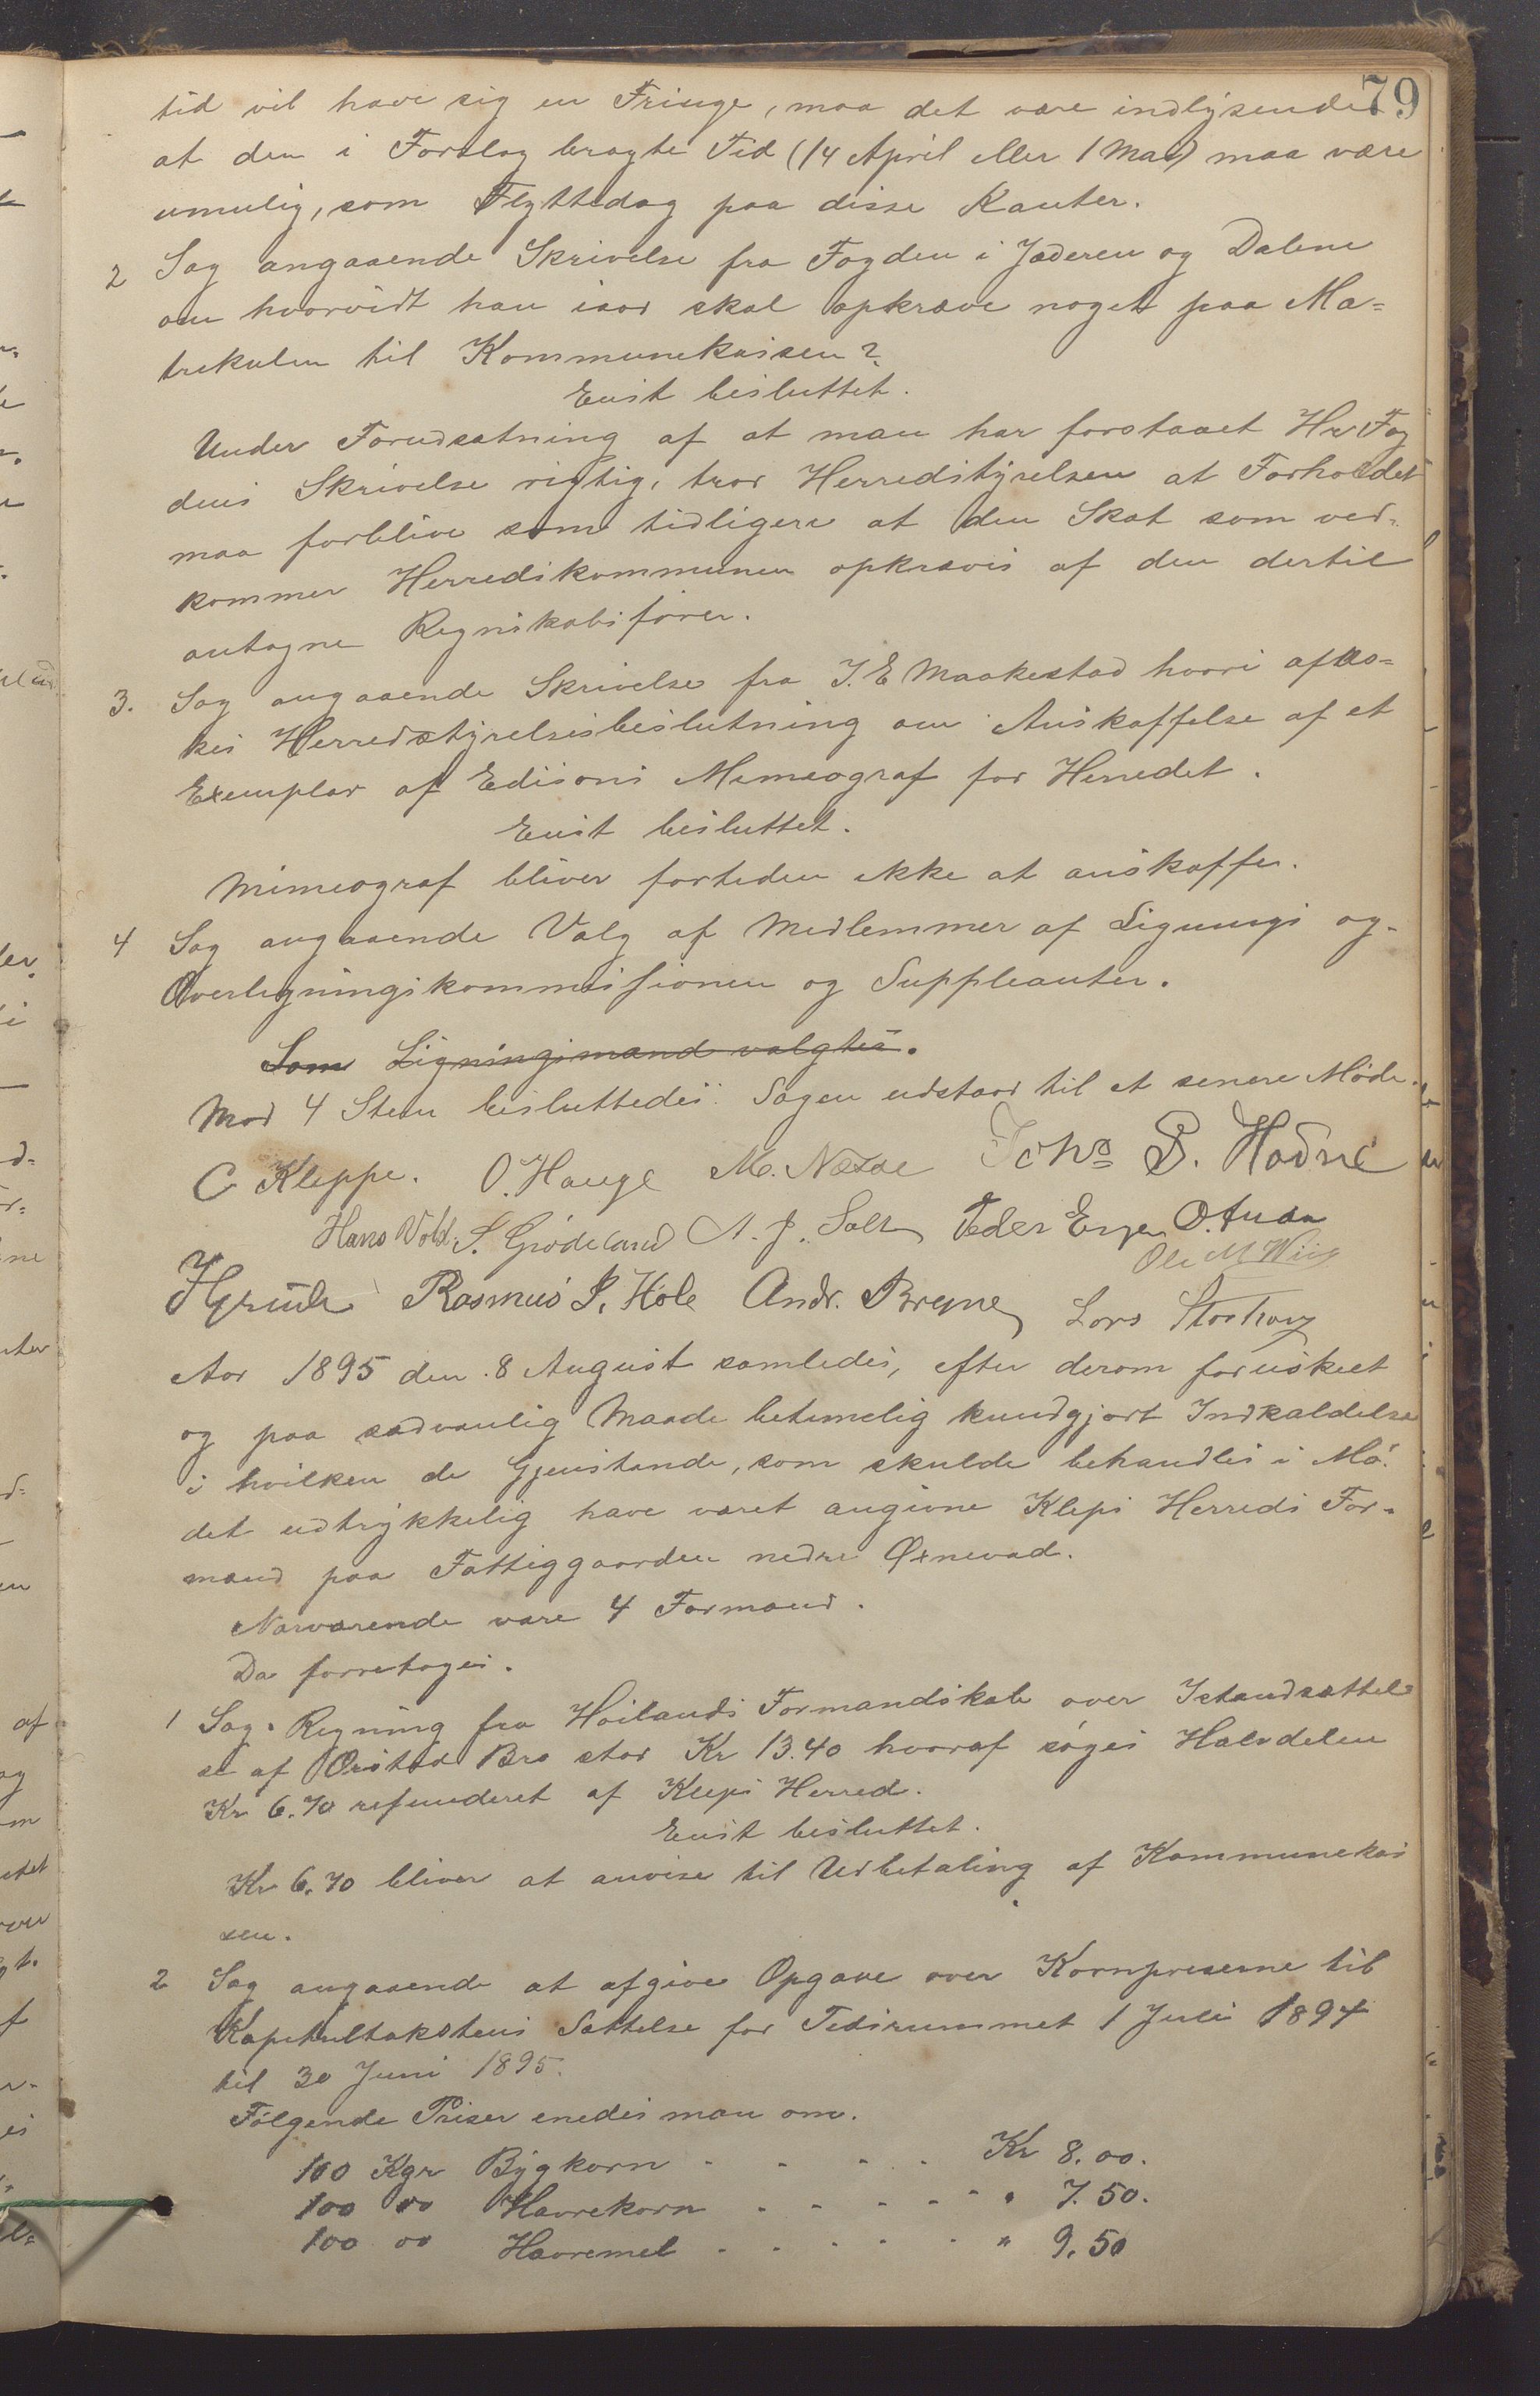 79
tid vil have sig en Fringe, maa det være indlysende
at den i Forslag bragte Tid (14 April eller 1 Mai) maa være
umulig, som Flyttedag paa disse Kanter.
2 Sag angaaende Skrivelse fra Fogden i Jæderen og Dalene
om hvorvidt han iaar skal opkræve noget paa Ma=
trikulen til Kommunekassen?
Enst besluttet.
Under Forudsætning af at man har forstaaet Hr Fog
dens Skrivelse rigtig, tror Herredstyrelsen at Forholdet
maa forblive som tidligere at den Skat som ved-
kommer Herredskommunen opkræves af den dertil
antagne Regnskabsfører.
3. Sag angaaende Skrivelse fra J. E Maakestad hvori afæs=
kes Herredstyrelsesbeslutning om Anskaffelse af et
Exemplar af Edisons Mimeograf for Herredet.
Enst besluttet.
Mimeograf bliver fortiden ikke at anskaffe.
4 Sag angaaende Valg af Medlemmer af Lignings og-
Overligningskommissionen og Suppleanter.
Som Ligningsmænd valgtes.
Mod 4 Stem besluttedes: Sagen udstaar til et senere Møde.
C Kleppe. O. Hauge M. Næsse Johs P. Hodne
Hans Vold. S. Grödeland A. J. Salte Peder Erga O. Anda
Ole M Wiig
Rasmus P. Hole Andr. Bryne Lars Storhaug
Aar 1895 den 8 August samledes, efter derom foruskeet
og paa sædvanlig Maade betimelig kundgjort Indkaldelse
i hvilken de Gjenstande, som skulde behandles i Mø-
det udtrykkelig have været angivne Kleps Herreds For-
mænd paa Fattiggaarden nedre Øxnevad.
Nærværende vare 4 Formænd.
Da forretoges.
1 Sag. Regning fra Høilands Formandskab over Istandsættel
se af Ørstad Bro stor Kr 13.40 hvoraf søges Halvdelen
Kr 6.70 refunderet af Kleps Herred.
Enst besluttet.
Kr 6.70 bliver at anvise til Udbetaling af Kommunekas
sen.
2 Sag angaaende at afgive Opgave over Kornpriserne til
Kapitultakstens Sættelse for Tidsrummet 1 Juli 1894
til 30 Juni 1895.
Følgende Priser enedes man om.
100 Kgr Bygkorn - - - - Kr 8.00.
100 " Havrekorn - - - - - - " 7.50.
100 " Havremel - - - - - " 9.50